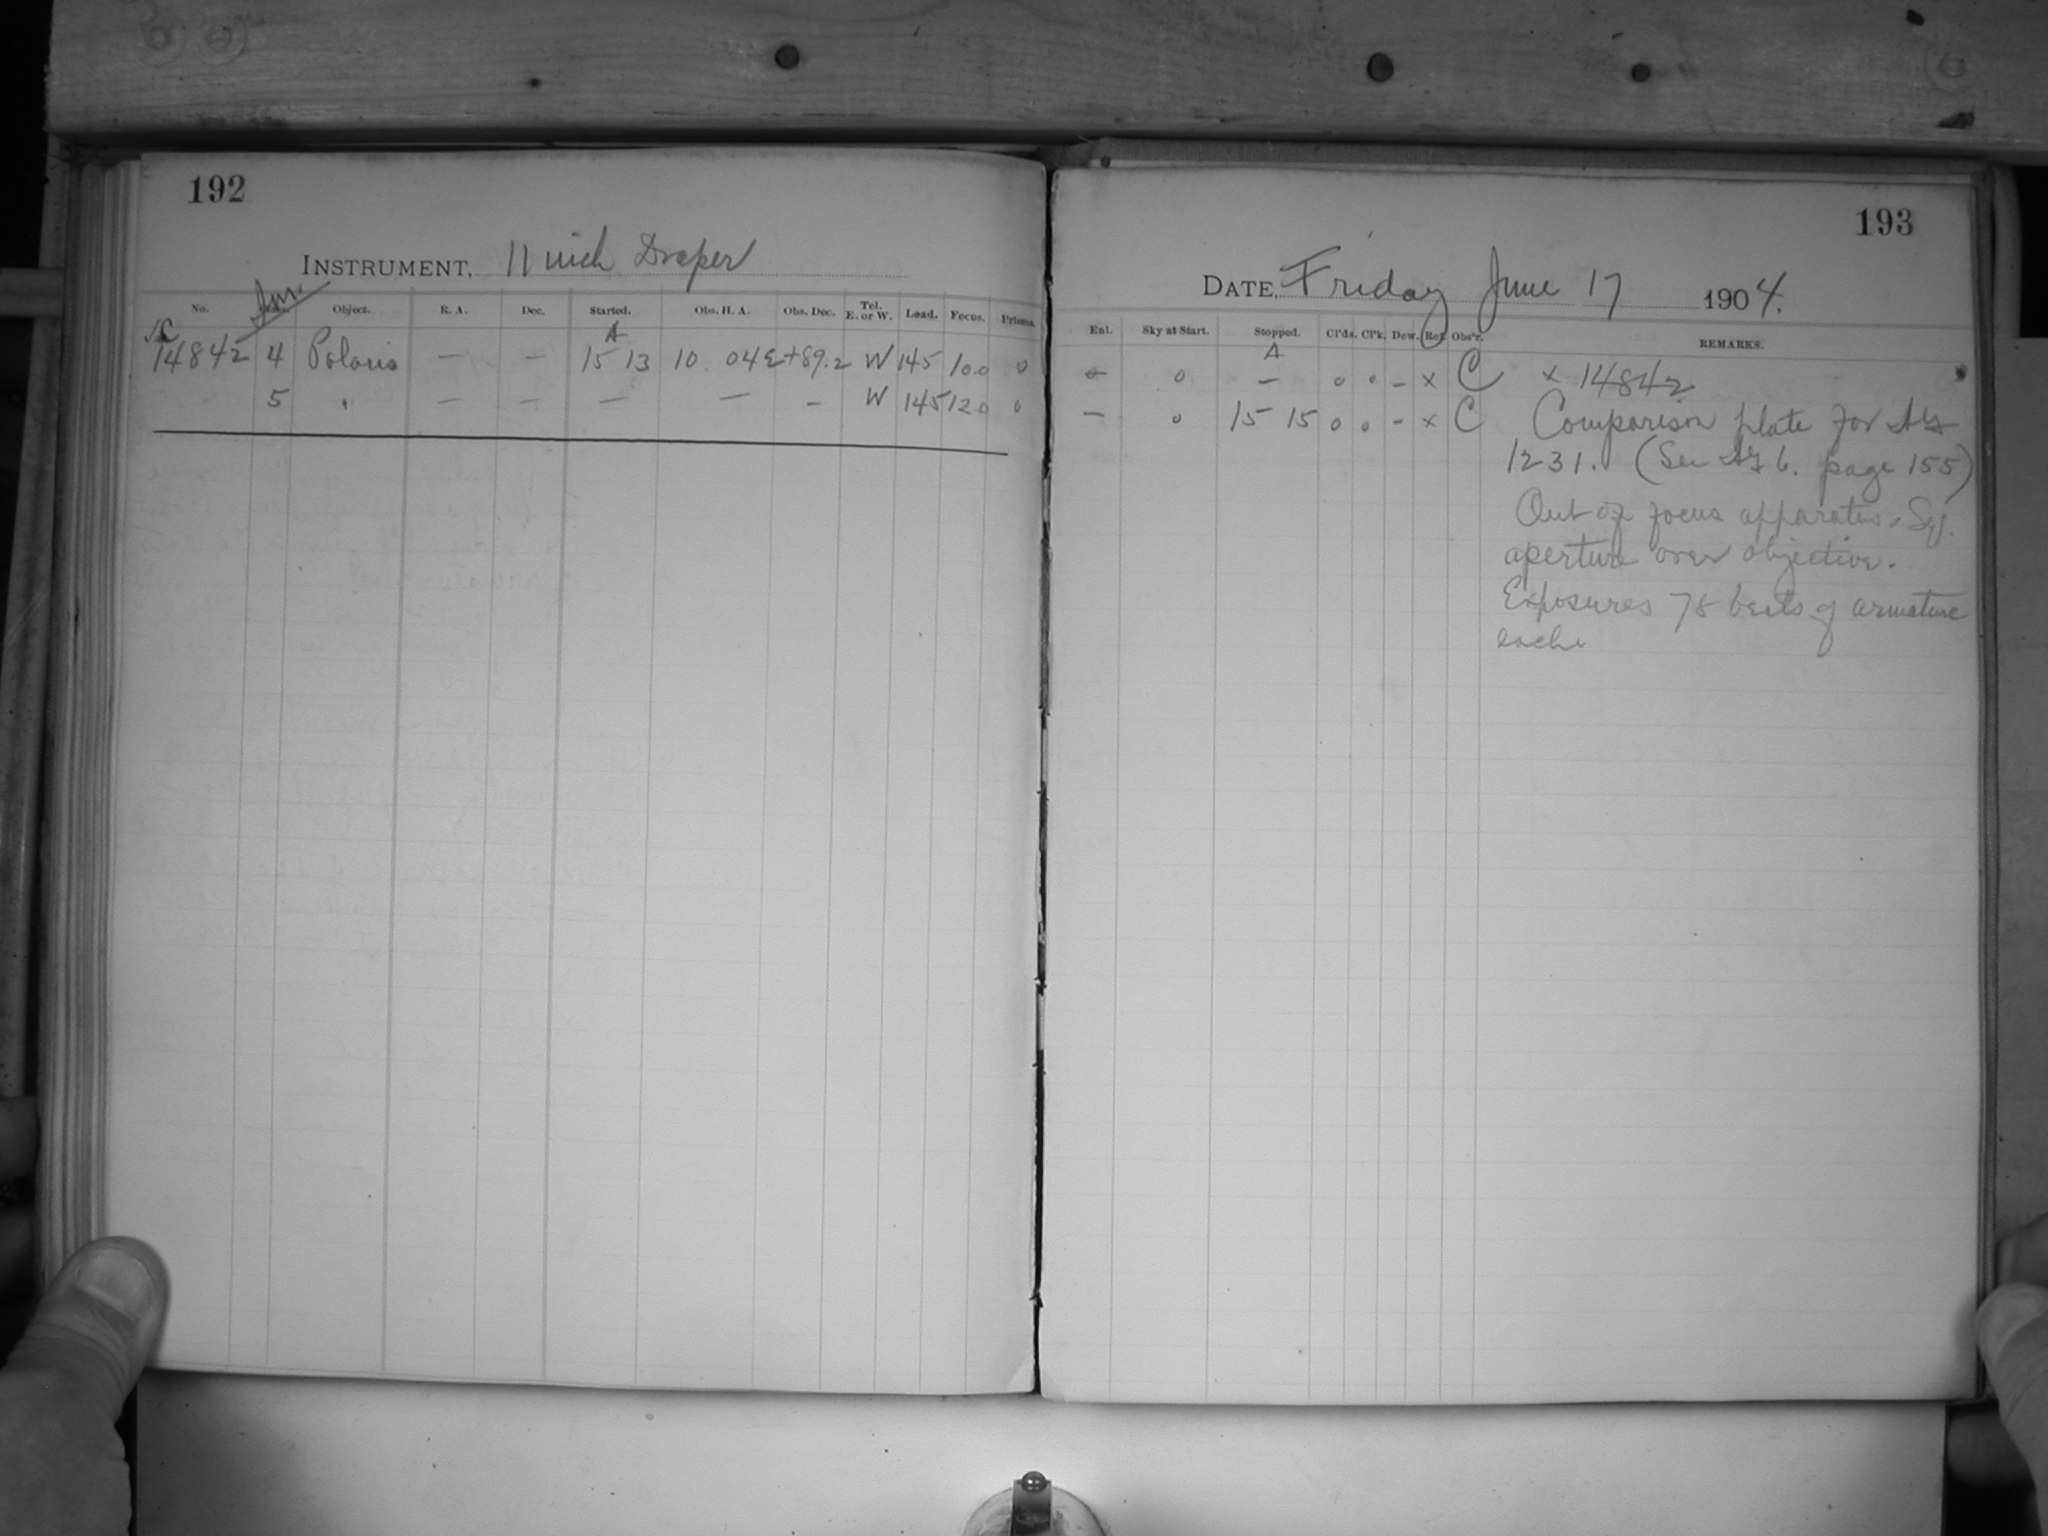 192
INSTRUMENT, 11 inch Draper
No. Object. R. A. Dec. Started. Obs. H. A. Obs. Dec. Tel. E. or W. Load. Focus. Prisms.
A
14842 4 Polaris — — 15 13 10 04 E +89.2 W 145 10.0 0
5 " — — — — — W 145 12.0 0
193
DATE, Friday June 17 1904.
Enl. Sky at Start. Stopped. Cl'ds. Cl'k. Dew. Ref. Obs'r. REMARKS.
A
— 0 — 0 0 – x C x 14842
— 0 15 15 0 0 – x C Comparison plate for
1231. (See 6. page 155)
Out of focus apparatus. Sq.
aperture over objective.
Exposures 78 beats of armature
each